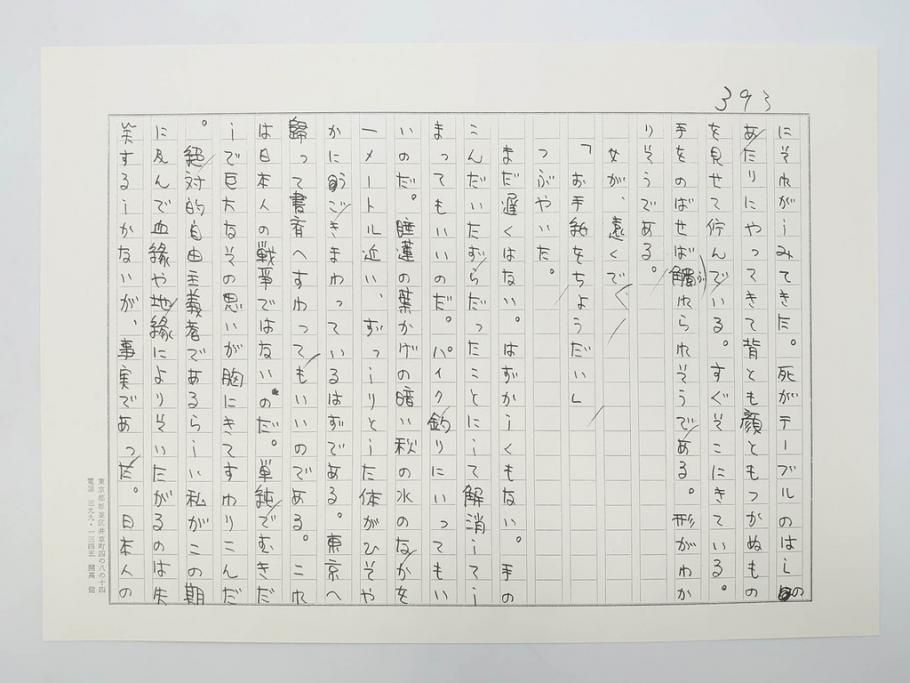 393
にそれがしみてきた。死がテーブルのはしの
あたりにやってきて背とも顔ともつかぬもの
を見せて佇んでいる。すぐそこにきている。
手をのばせば触れられそうである。形がわか
りそうである。
女が、遠くで
「お手紙をちょうだい」
つぶやいた。
まだ遅くはない。はずかしくもない。手の
こんだいたずらだったことにして解消してし
まってもいいのだ。パイク釣りにいってもい
いのだ。睡蓮の葉かげの暗い秋の水のなかを
一メートル近い、ずっしりとした体がひそや
かにうごきまわっているはずである。東京へ
帰って書斎へすわってもいいのである。これ
は日本人の戦争ではないのだ。単純でむきだ
しで巨大なその思いが胸にきてすわりこんだ
。絶対的自由主義者であるらしい私がこの期
に及んで血縁や地縁によりそいたがるのは失
笑するしかないが、事実であった。日本人の
東京都杉並区井草町四の八の十四
電話 三九九・一三四五 開高 健